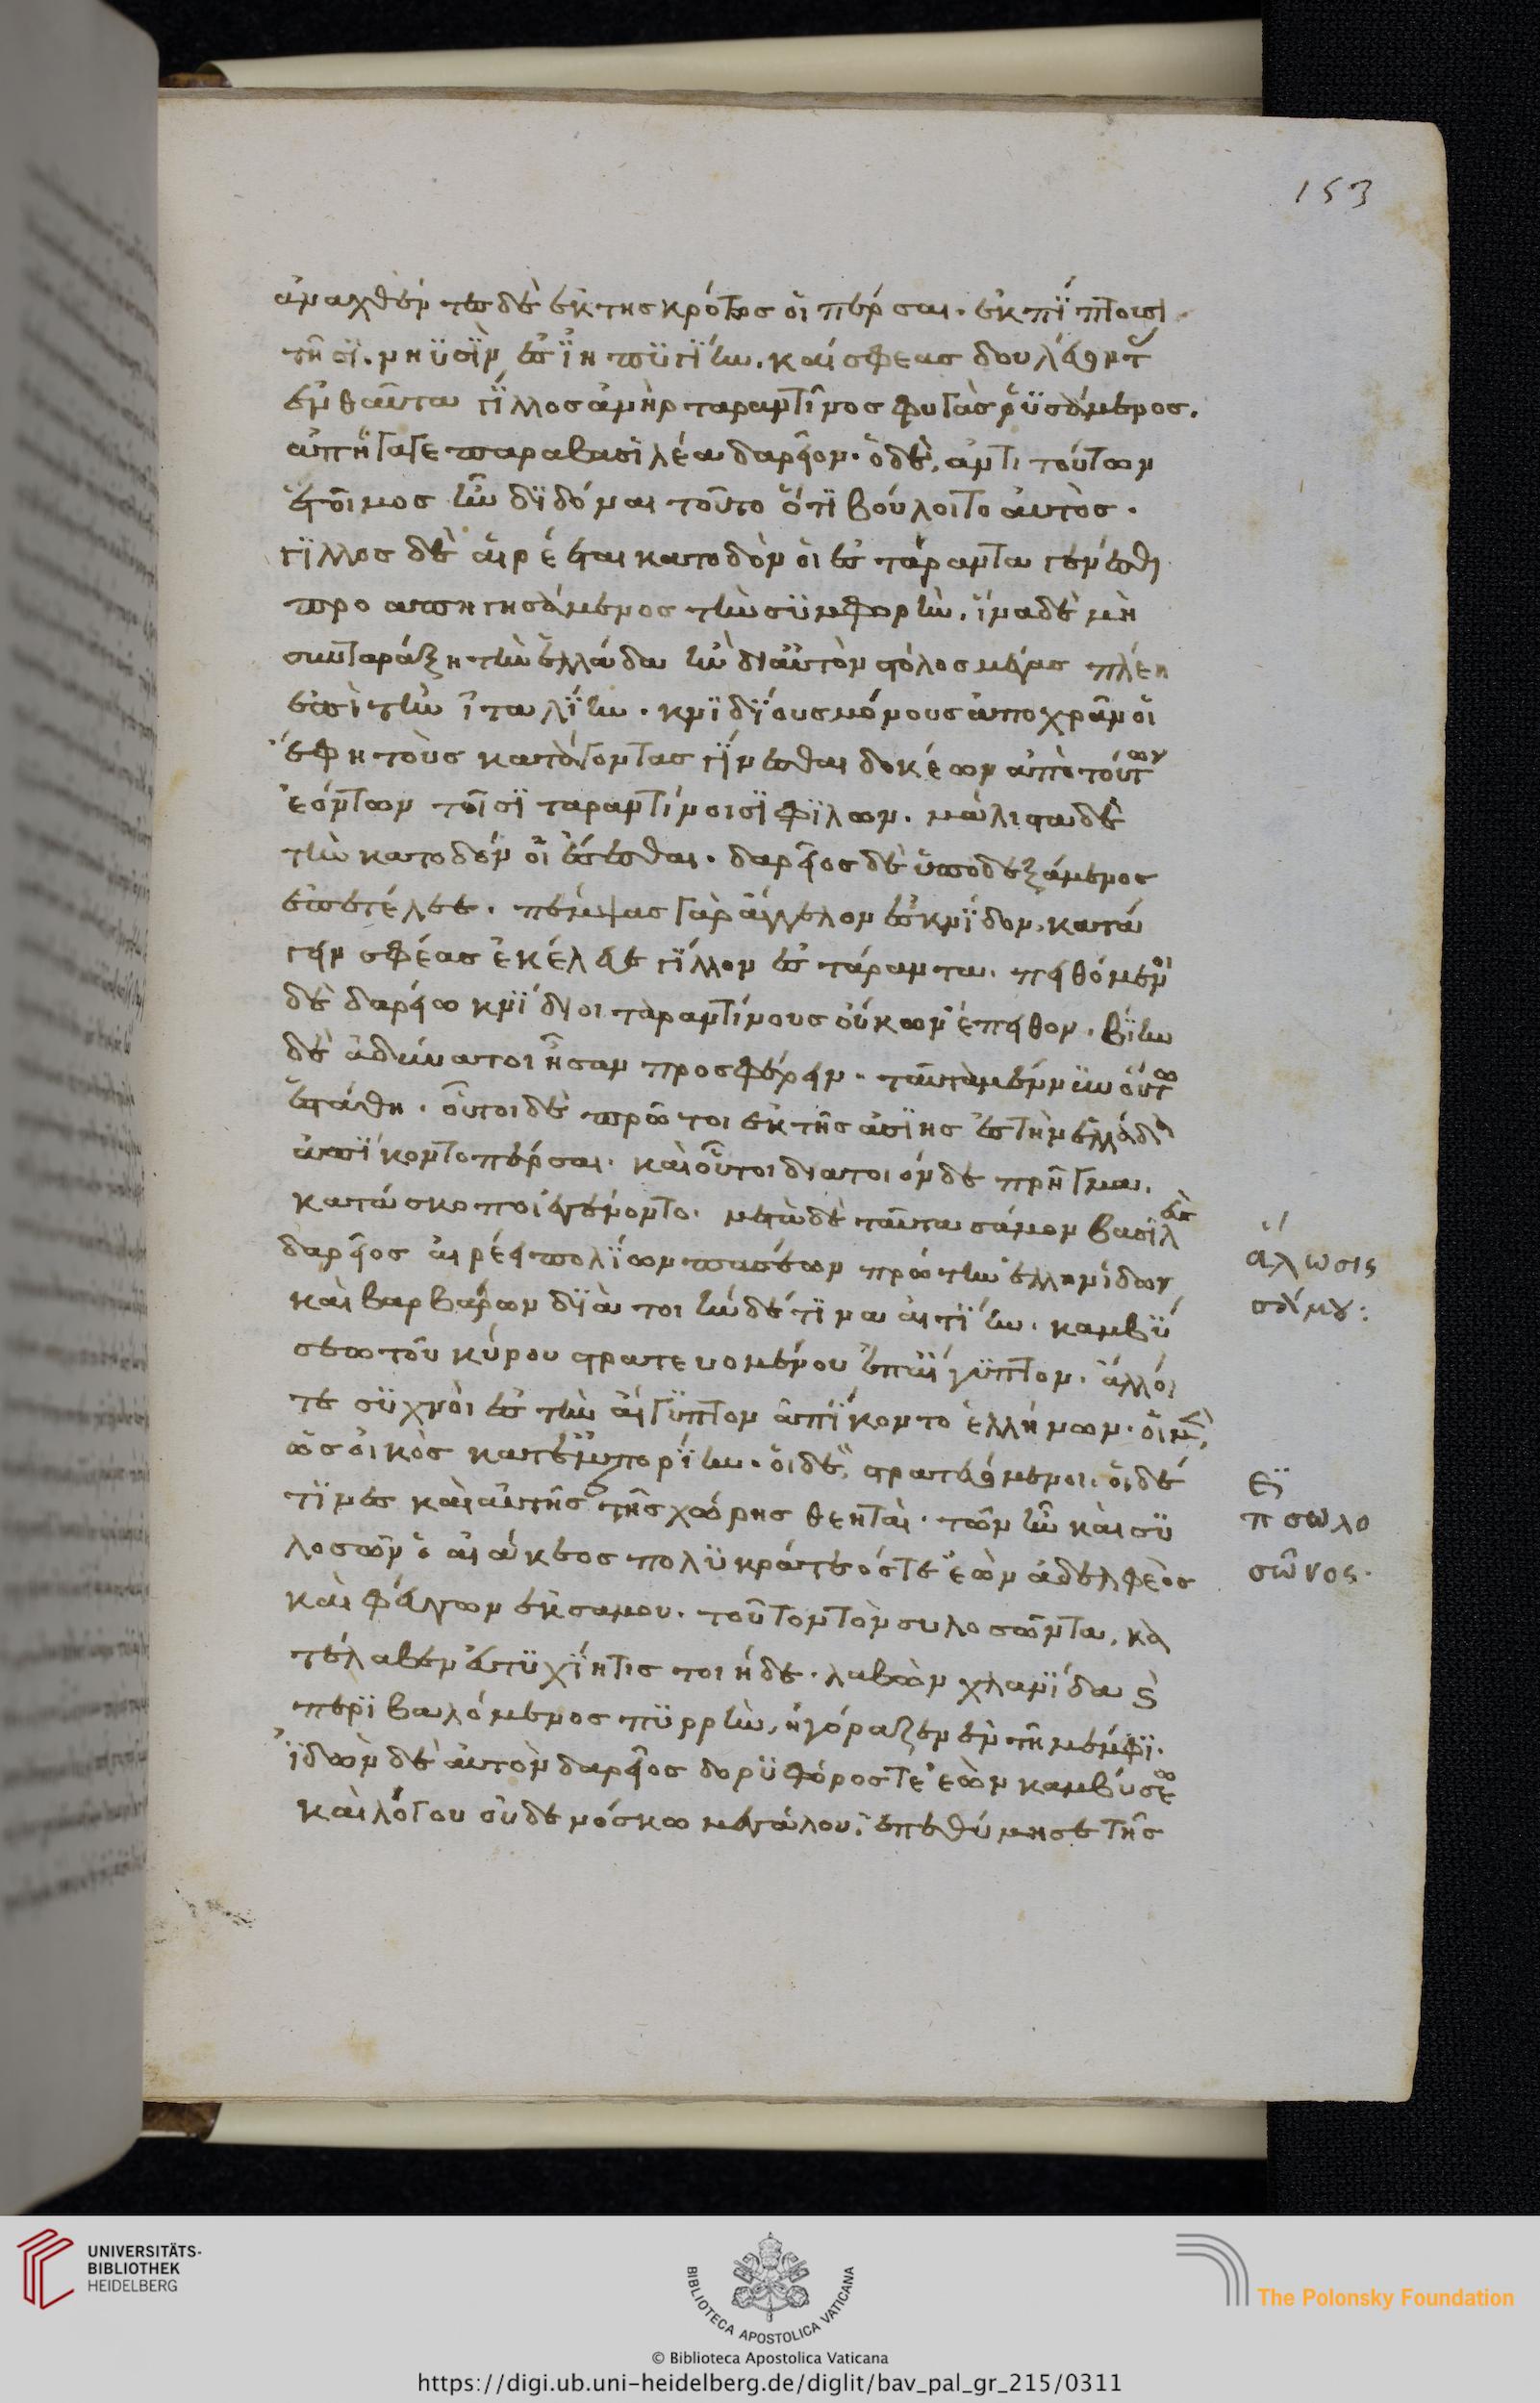 153
ἀναχθέντες δὲ ἐκ τῆς κρότωνος οἱ πέρσαι. ἐκπίπτουσι
τῆσι νηυσὶν ἐς ἰηπυγίην. καί σφεας δουλεύοντ
ἐνθαῦτα γίλλος ἀνὴρ ταραντῖνος φυγὰς ῥυσάμενος.
ἀπήγαγε παρα βασιλέα δαρεῖον. ὁ δὲ, ἀντὶ τούτων
ἕτοιμος ἦν διδόναι τοῦτο ὅτι βούλοιτο αὐτὸς.
γίλλος δὲ αἱρέεται κατοδόν οἱ ἐς τάραντα γενέσθαι
προαπηγησάμενος τὴν συμφορὴν. ἵνα δὲ μὴ
συνταράξη τὴν ἑλλάδα ἢν δι αὐτὸν στόλος μέγας πλέη
ἐπὶ τὴν ἰταλίην. κνιδίους μούνους ἀποχρᾶν οἱ
ἔφη τοὺς κατάγοντας γίνεσθαι δοκέων ἀπὸ τούτων
ἐόντων τοῖσι ταραντίνοισι φίλων. μάλιστα δὲ
τὴν κατοδόν οἱ ἔσεσθαι. δαρεῖος δὲ ὑποδεξάμενος
ἐπετέλεε. πέμψας γὰρ ἄγγελον ἐς κνίδον, κατά
γειν σφέας ἐκέλευε γίλλον ἐς τάραντα. πειθόμενοι
δὲ δαρείω κνίδιοι ταραντίνους οὔκων ἔπειθον. βίην
δὲ ἀδύνατοι ἦσαν προσφέρειν. ταῦτα μέν νυν οὕτω
ἐπρήχθη. οὗτοι δὲ πρῶτοι ἐκ τῆς ἀσίης ἐς τὴν ἑλλάδα
ἀπίκοντο πέρσαι. καὶ οὗτοι δια τοιόνδε πρῆγμα.
κατάσκοποι ἐγένοντο. μετὰ δὲ ταῦτα σάμον βασιλεὺς
δαρεῖος αἱρέει πολίων πασέων πρώτην ἑλληνίδων
καὶ βαρβάρων διὰ τοιήνδέ τινα αἰτίην. καμβύ
σεω τοῦ κύρου στρατευομένου ἐπ αἴγυπτον. ἄλλοι
τε συχνοὶ ἐς τὴν αἴγυπτον ἀπίκοντο ἑλλήνων. οἱ μὲν,
ὡς οἰκὸς κατ ἐμπορίην. οἱ δὲ, στρατευόμενοι. οἱ δέ
τινες καὶ αὐτῆς τῆς χώρης θεηταὶ. τῶν ἦν καὶ συ
λοσῶν ὁ αἰάκεος πολυκράτεός τε ἐὼν ἀδελφεὸς
καὶ φεύγων ἐκ σαμου. τοῦτον τὸν συλοσῶντα, κα
τέλαβεν εὐτυχίη τις τοιήδε. λαβὼν χλανίδα καὶ
περιβαλόμενος πυρρὴν, ἠγόραζεν ἐν τῆ μέμφι.
ἰδὼν δὲ αὐτὸν δαρεῖος δορυφόρος τε ἐὼν καμβύσεω
καὶ λόγου οὐδενός κω μεγάλου, ἐπεθύμησε τῆς
ἅλωσις
σάμου:
ἐϊ
πσωλο
σῶνος.
UNIVERSITÄTS-
BIBLIOTHEK
HEIDELBERG
BIBLIOTECA APOSTOLICA VATICANA
The Polonsky Foundation
© Biblioteca Apostolica Vaticana
https://digi.ub.uni-heidelberg.de/diglit/bav_pal_gr_215/0311